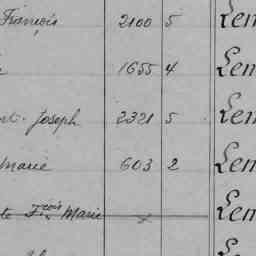 François 2100 5 Lem
1655 4 Lem
nt. Joseph 2321 5 Lem
Marie 603 2 Lem
te Fcois Marie x Lem